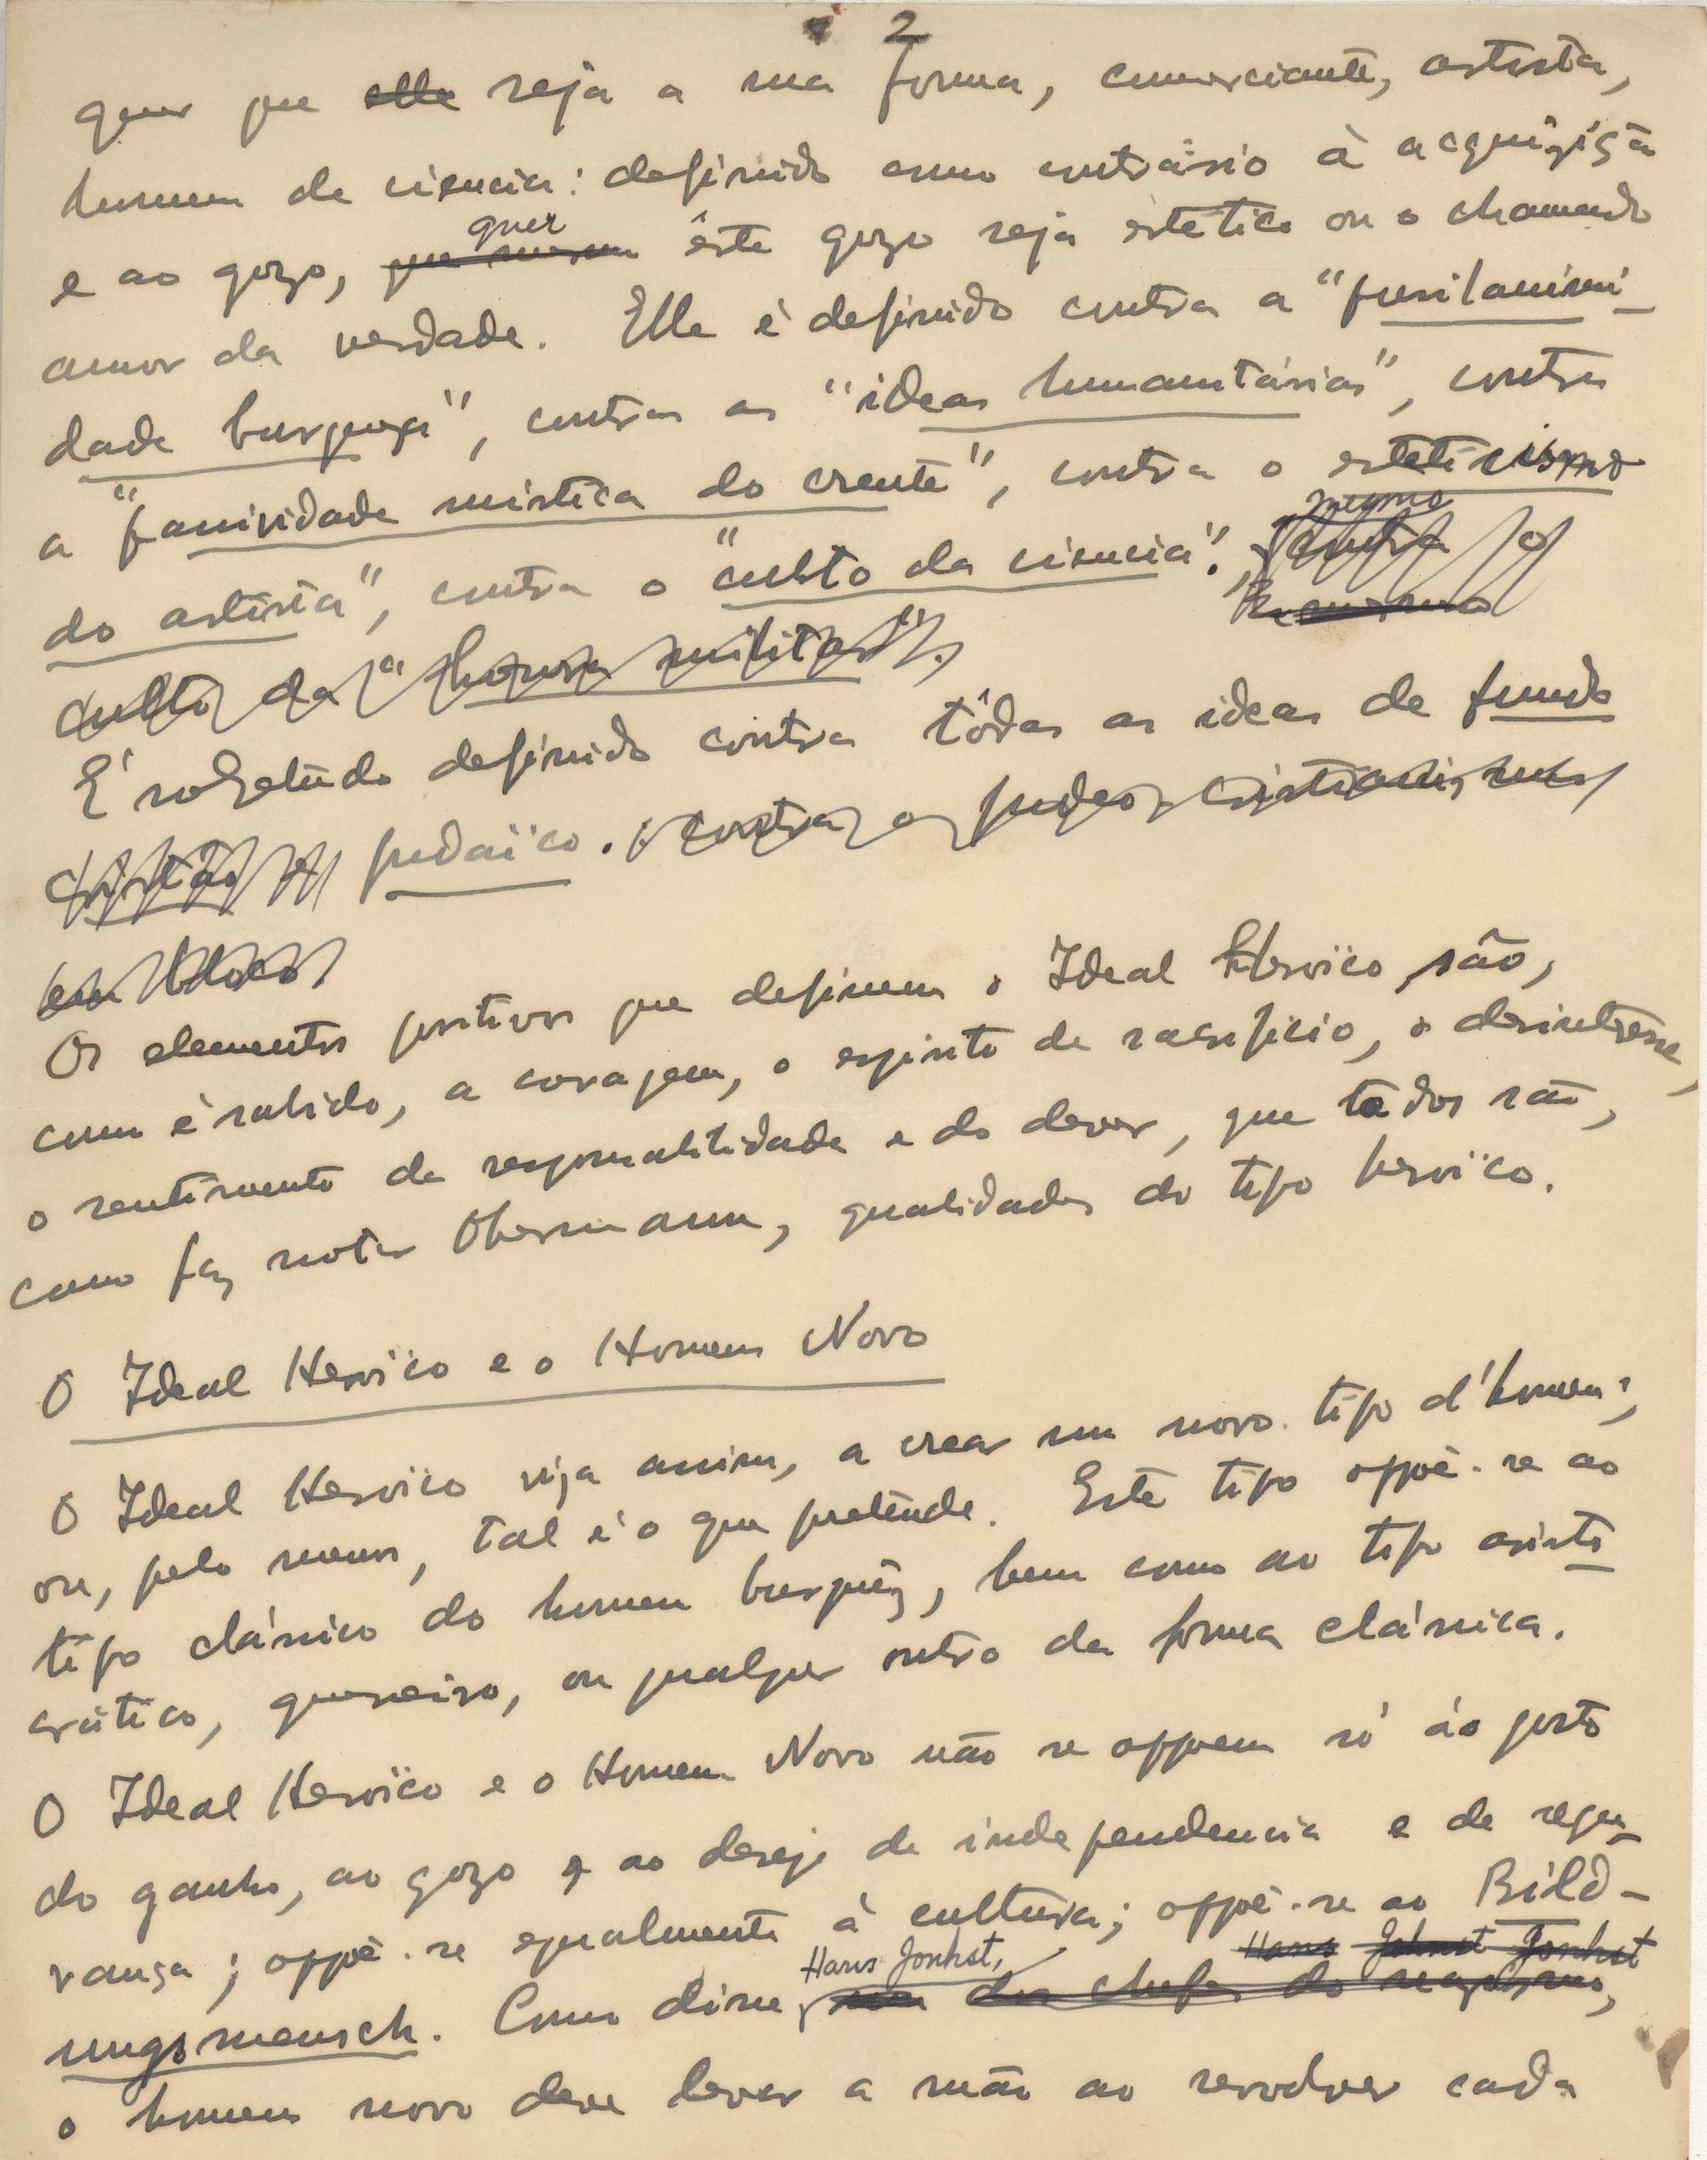 2
quer que elle seja a sua forma, comerciante, artista,
homem de ciencia: definido como contrário à acquizição
quer
e ao gozo, que mesmo êste gozo seja estético ou o chamado
amor da verdade. Elle é definido contra a "pusilanimi-
dade burgueza", contra as "ideas humanitárias", contra
a "passividade mistica do crente", contra o esteticismo
mesmo
do artista", contra o "culto da ciencia", contra o
culto da "honra militar".
É sobretudo definido contra tôdas as ideas de fundo
cristão e judaïco. contra o judeo-cristianismo
em bloco
Os elementos positivos que definem o Ideal Heroïco são,
como é sabido, a coragem, o espirito de sacrificio, o desinteresse,
o sentimento da responsabilidade e do dever, que todos são,
como faz notar Obermann, qualidades do tipo heroïco.
O Ideal Heroïco e o Homem Novo
O Ideal Heroïco visa assim, a crear um novo tipo d'homem;
ou, pelo menos, tal é o que pretende. Este tipo oppõe-se ao
tipo clássico do homem burguêz, bem como ao tipo aristo-
cratico, guerreiro, ou qualquer outro da forma clássica.
O Ideal Heroïco e o Homem Novo não se oppoem só ao gosto
do ganho, ao gozo e ao desejo de independencia e de segu-
rança; oppõe-se egualmente à cultura; oppõe-se ao Bild-
Hans Jonhst, Hans Johnst Jonhst
ungsmensch. Como disse, um dos chefes do nazismo,
o homem novo deve levar a mão ao revolver cada